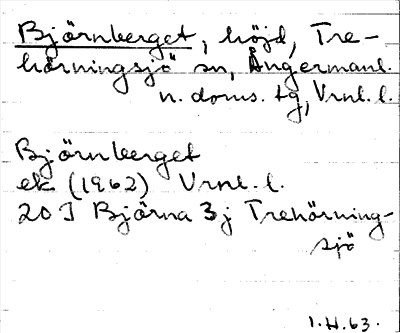 Björnberget, höjd, Tre-
hörningsjö sn, Ångermanl.
n. doms. tg, Vrnl. l.
Björnberget
ek (1962) Vrnl. l.
20 J Björna 3j Trehörning-
sjö
1.H.63.